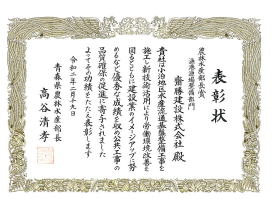 表彰状
農林水産部長賞
漁港漁場整備部門
齋勝建設株式会社 殿
貴社は小泊地区水産流通基盤整備工事を
施工し新技術活用により労働環境改善を
図るとともに建設業のイメージアップに努
めるなど優秀な成績を収め公共工事の
品質確保の促進に寄与されました
よってその功績をたたえ表彰します
令和二年二月十九日
青森県農林水産部長
高谷清孝